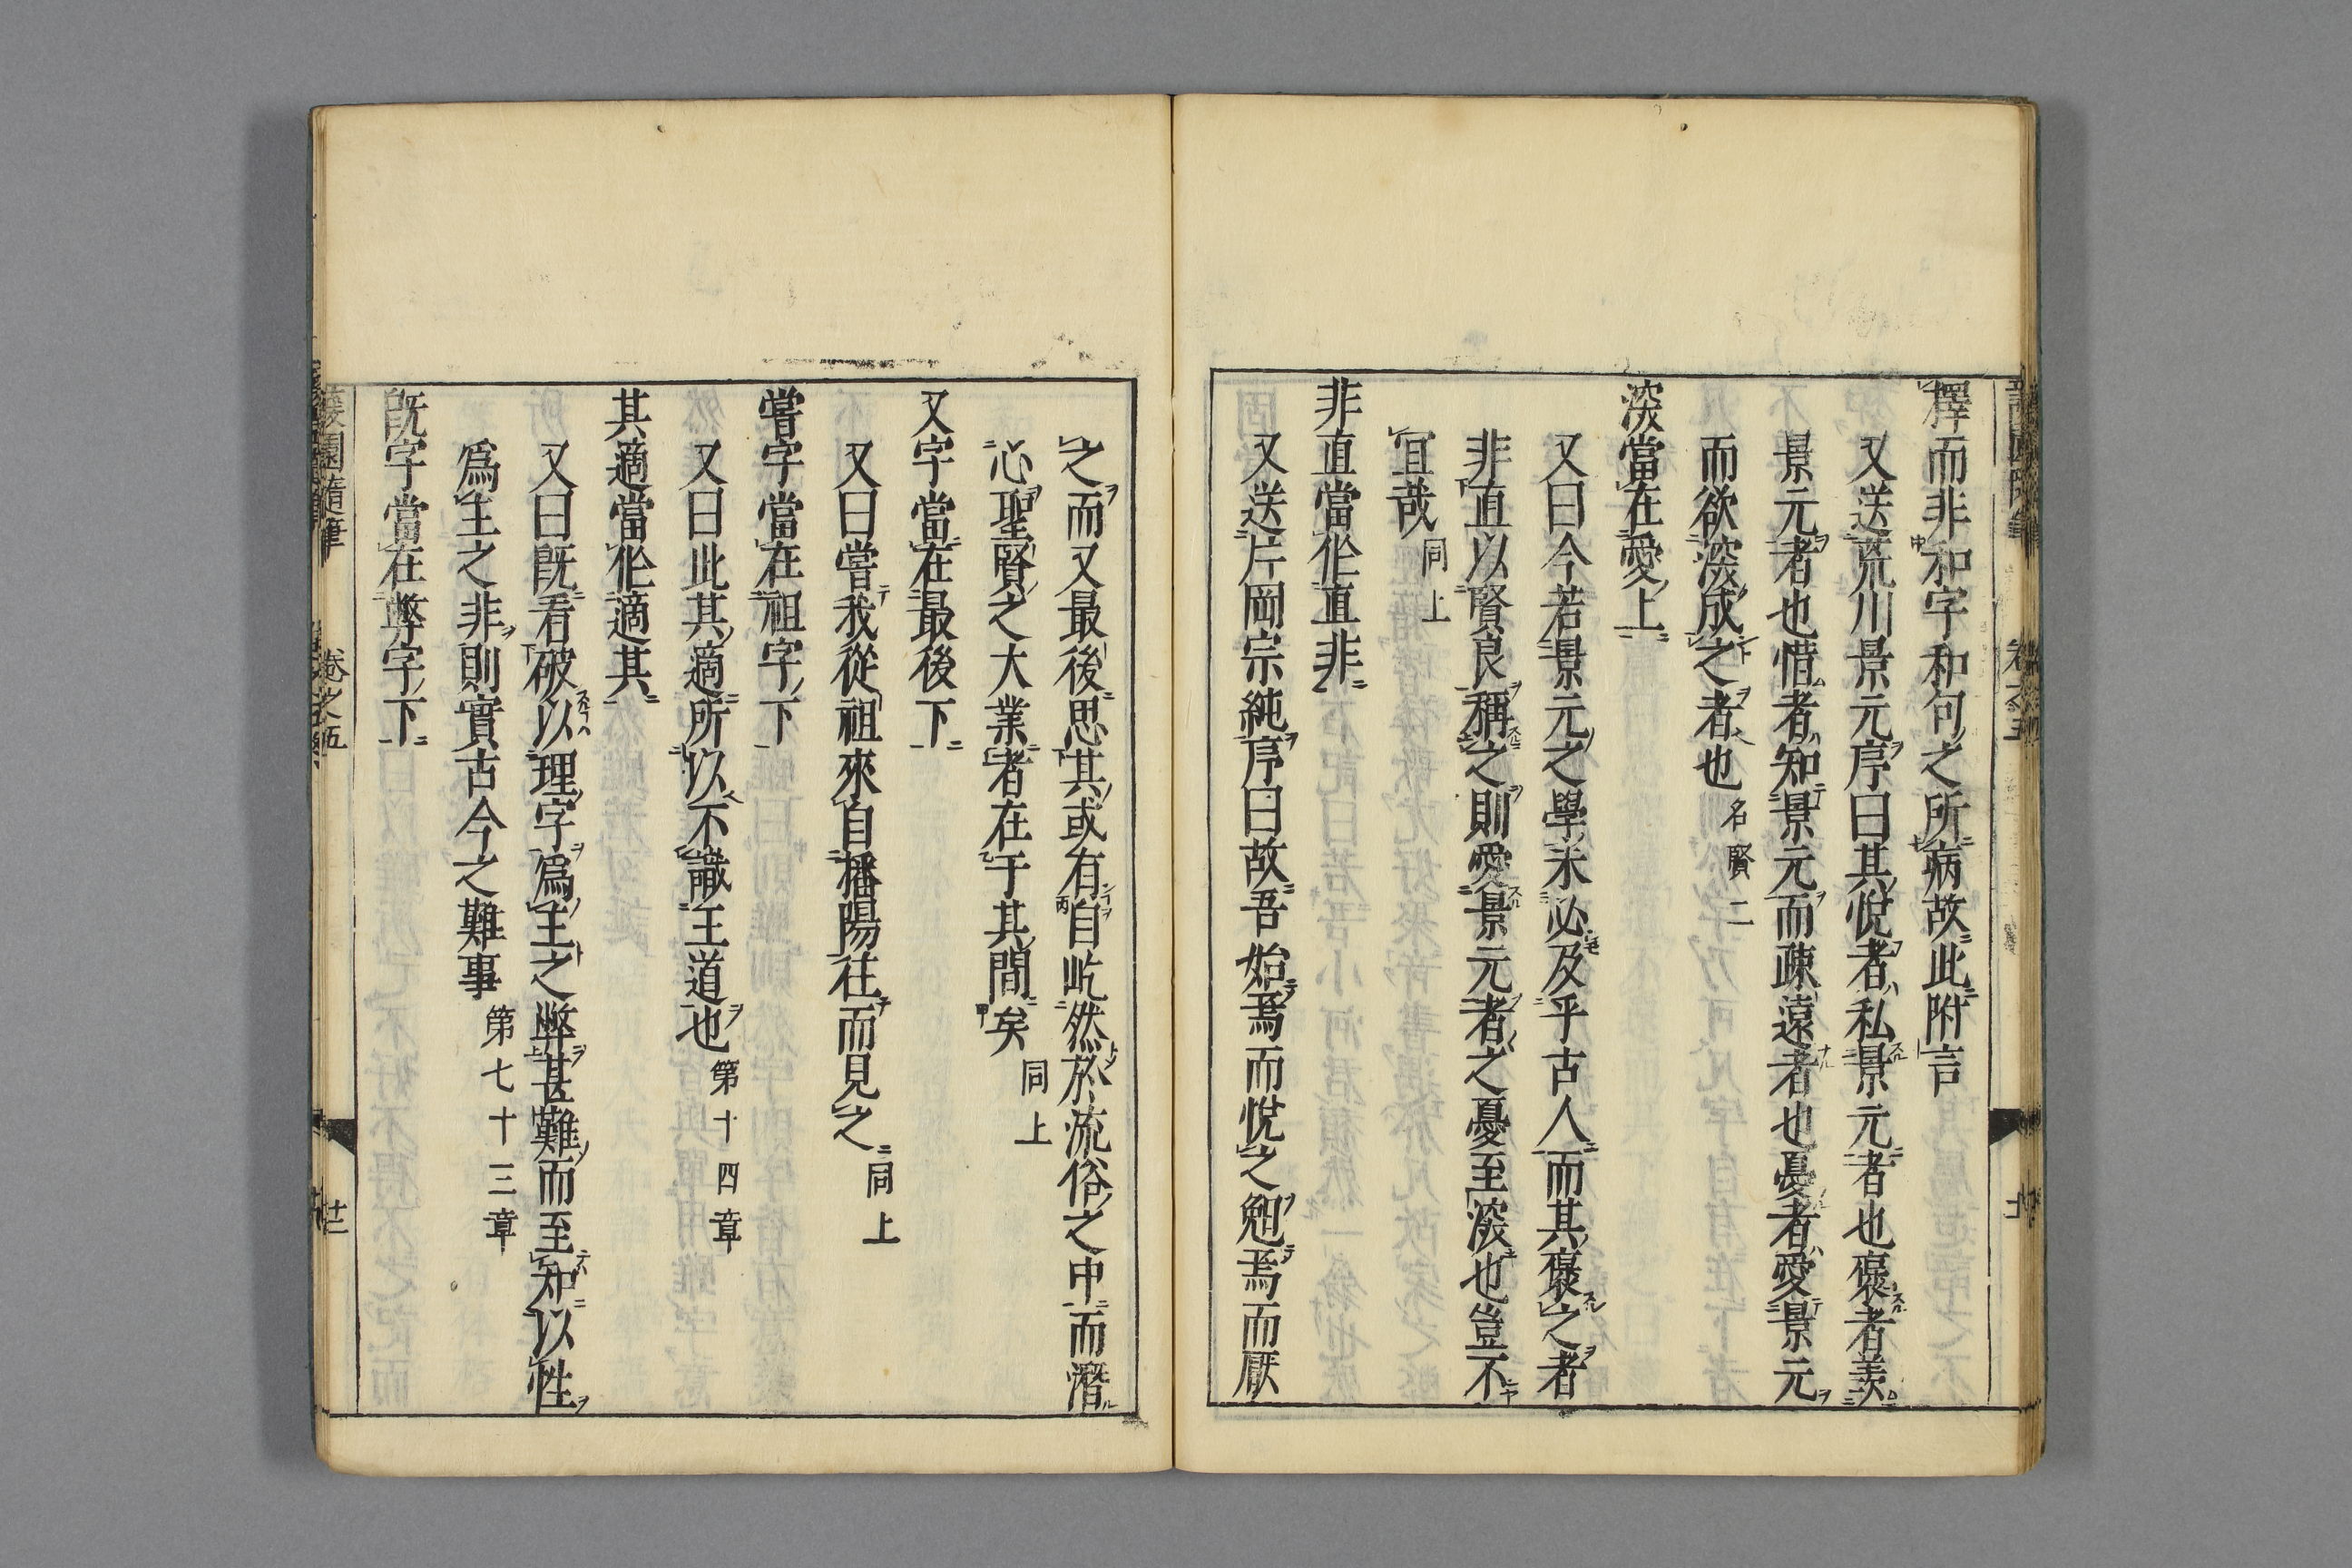 釋而非和字和句之所病故此附言
又送荒川景元序曰其悅者私景元者也褒者羨
景元者也惜者知景元而疎遠者也憂者愛景元
而欲深成之者也名賢二
深當在愛上
又曰今若景元之學未必及乎古人而其褒之者
非直以賢良稱之則愛景元者之憂至深也豈不
宜哉同上
非直當作直非
又送片岡宗純序曰故吾始焉而悅之勉焉而厭
之而又最後思其或有自屹然於流俗之中而潛
心聖賢之大業者在于其間矣同上
又字當在最後下
又曰嘗我從祖來自播陽往而見之同上
嘗字當在祖字下
又曰此其適所以不識王道也第十四章
其適當作適其
又曰旣看破以理字爲主之弊甚難而至知以性
爲主之非則實古今之難事第七十三章
旣字當在弊字下
蘐園隨筆 卷之五 廿二